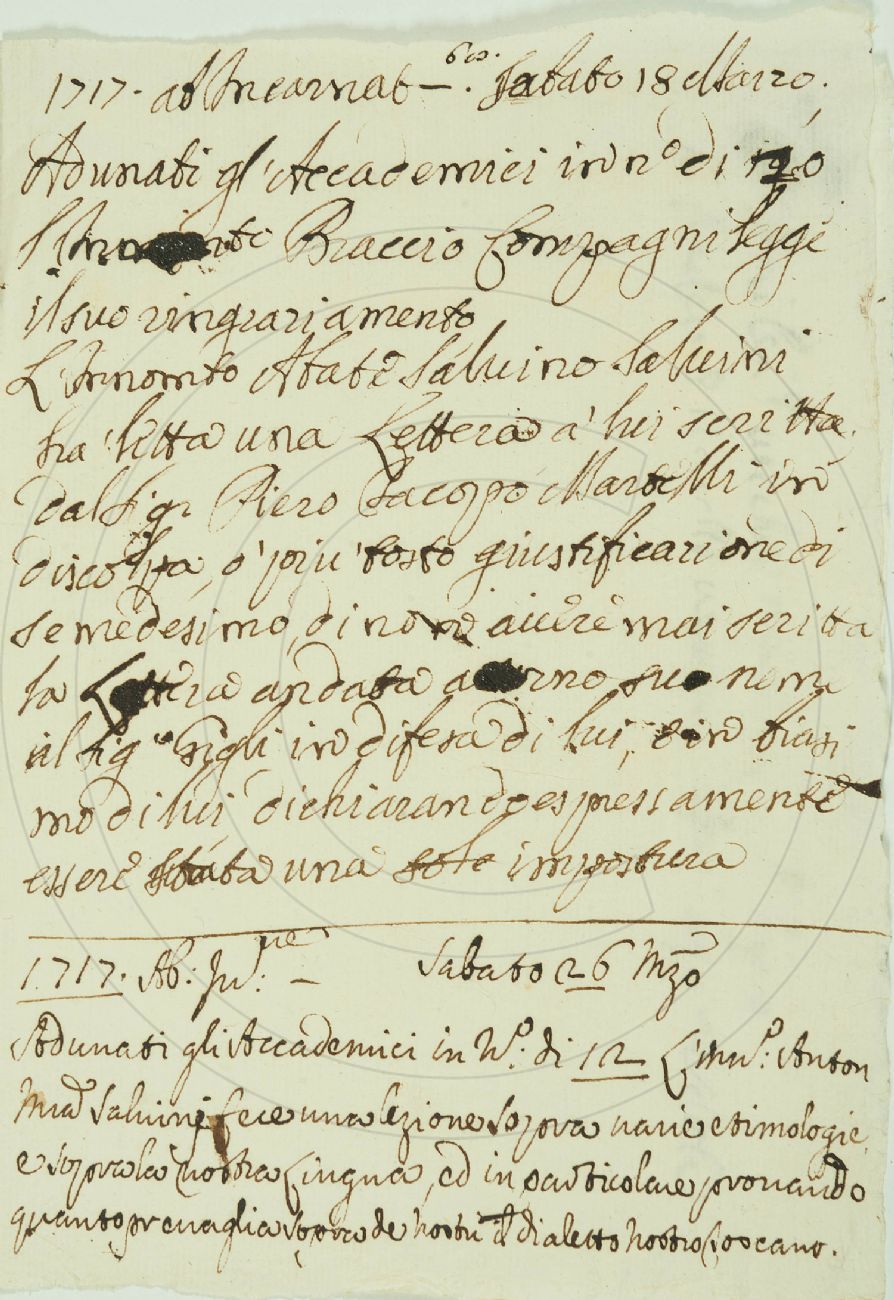 1717. ab Incarnat —. Sabato 18 Marzo.
Adunati gl'Accademici in n.o di
L'Inn to Braccio Compagni legge
il suo ringraziamento
L'Innom.to Abate Salvino Salvini
ha letta una Lettera à lui scritta
dal Sigr Piero Iacopo Martelli in
discolpa, ò più tosto giustificazione di
se medesimo, di non avere mai scritta
la Lettera andata attorno suo nome
al Sig.re Gigli in difesa di lui, e in biasi
mo di lui dichiarando espressamente
essere stata una sole impostura
1717. Ab. In.ne — Sabato 26 Mzo
Adunati gli Accademici in N.o di 12 L'Inn.o Anton
Mria Salvini fece una lezione sopra varie etimologie
e sopra la nostra Lingua, ed in particolare provando
quanto prevaglia sopra de nostri il dialetto nostro Toscano.